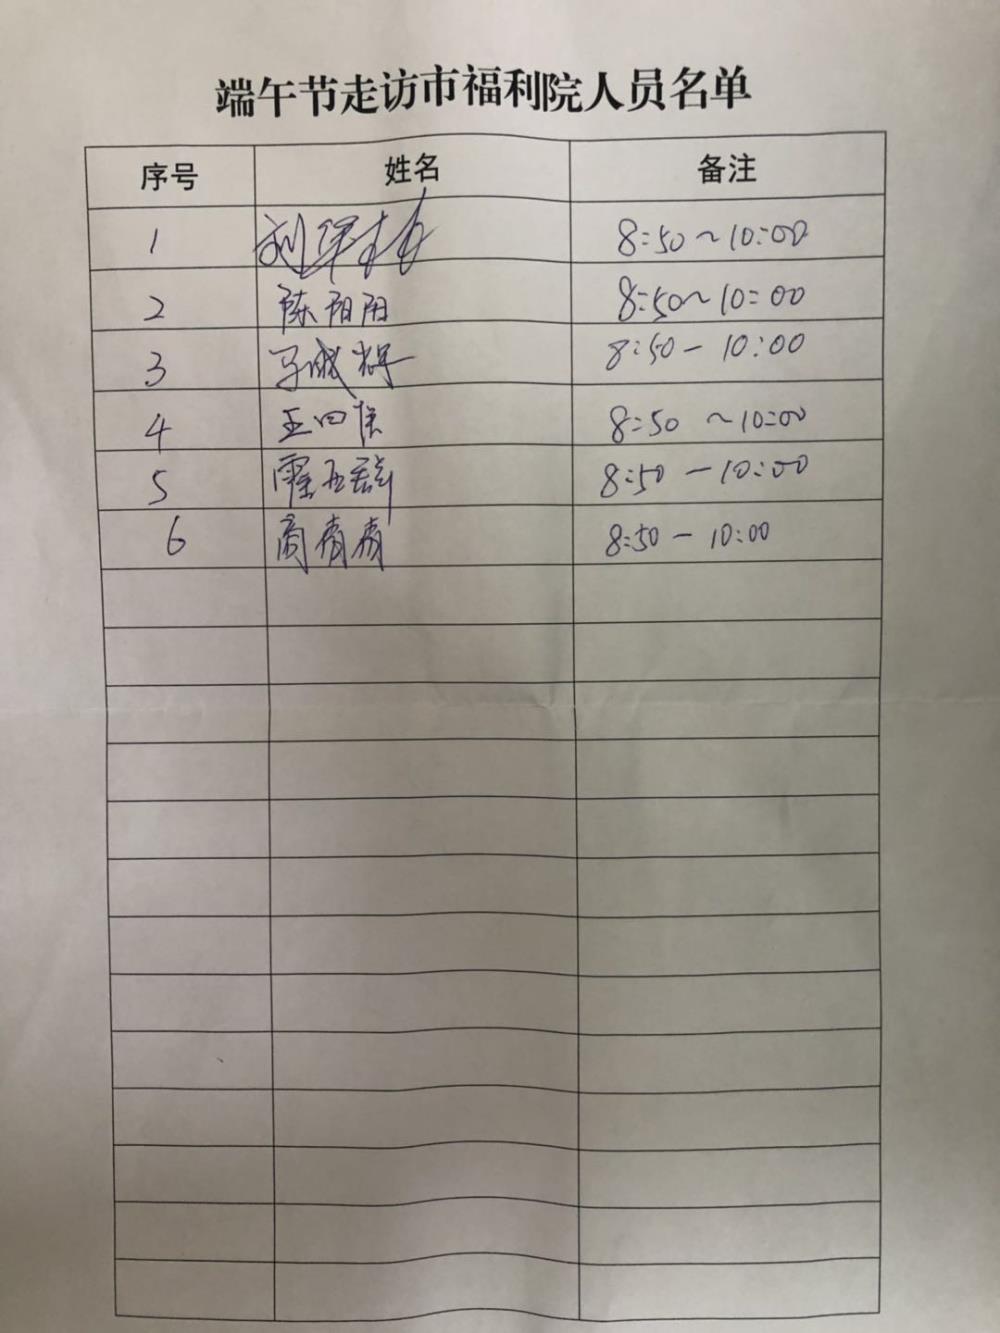 端午节走访市福利院人员名单
序号 姓名 备注
1 刘军 8:50~10:00
2 陈阳阳 8:50~10:00
3 马成 8:50-10:00
4 王四 8:50~10:00
5 霍 8:50-10:00
6 商青青 8:50-10:00